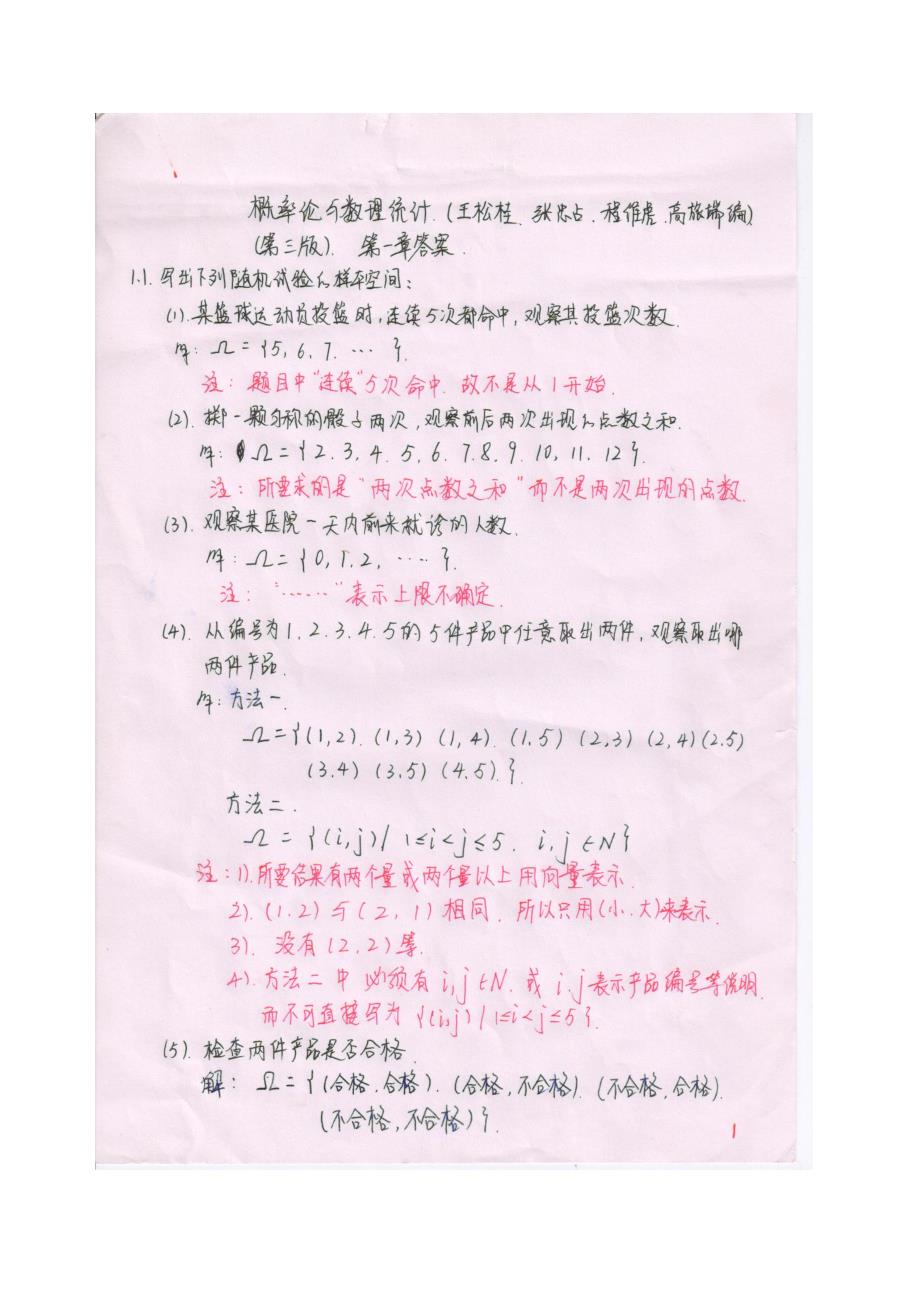 概率论与数理统计.(王松桂.张忠占.程维虎.高旅端编)
(第三版). 第一章答案.
1.1.写出下列随机试验的样本空间:
(1).某篮球运动员投篮时,连续5次都命中,观察其投篮次数.
解: Ω={5,6,7.…}.
注:题目中"连续"5次命中.故不是从1开始.
(2).掷一颗匀称的骰子两次,观察前后两次出现的点数之和.
解: Ω={2.3.4.5.6.7.8.9.10,11.12}.
注:所要求的是"两次点数之和"而不是两次出现的点数.
(3).观察某医院一天内前来就诊的人数.
解:Ω={0,1.2,……}.
注:"……"表示上限不确定.
(4).从编号为1.2.3.4.5的5件产品中任意取出两件,观察取出哪
两件产品.
解:方法一.
Ω={(1,2).(1,3)(1,4).(1.5)(2,3)(2,4)(2.5)
(3.4)(3.5)(4.5).}.
方法二.
Ω={(i,j)|1≤i<j≤5.i,j∈N}
注:1).所要结果有两个量或两个量以上用向量表示.
2).(1.2)与(2,1)相同.所以只用(小.大)来表示.
3).没有(2,2)等.
4).方法二中必须有i,j∈N.或i.j表示产品编号等说明.
而不可直接写为{(i,j)|1≤i<j≤5}.
(5).检查两件产品是否合格.
解:Ω={(合格.合格).(合格,不合格).(不合格,合格).
(不合格,不合格)}.
1